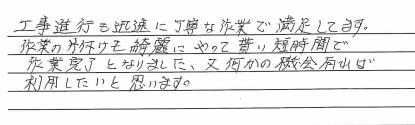 工事進行も迅速に丁寧な作業で満足してます。
作業の片付けも綺麗にやって貰い短時間で
作業完了となりました、又何かの機会有れば
利用したいと思います。